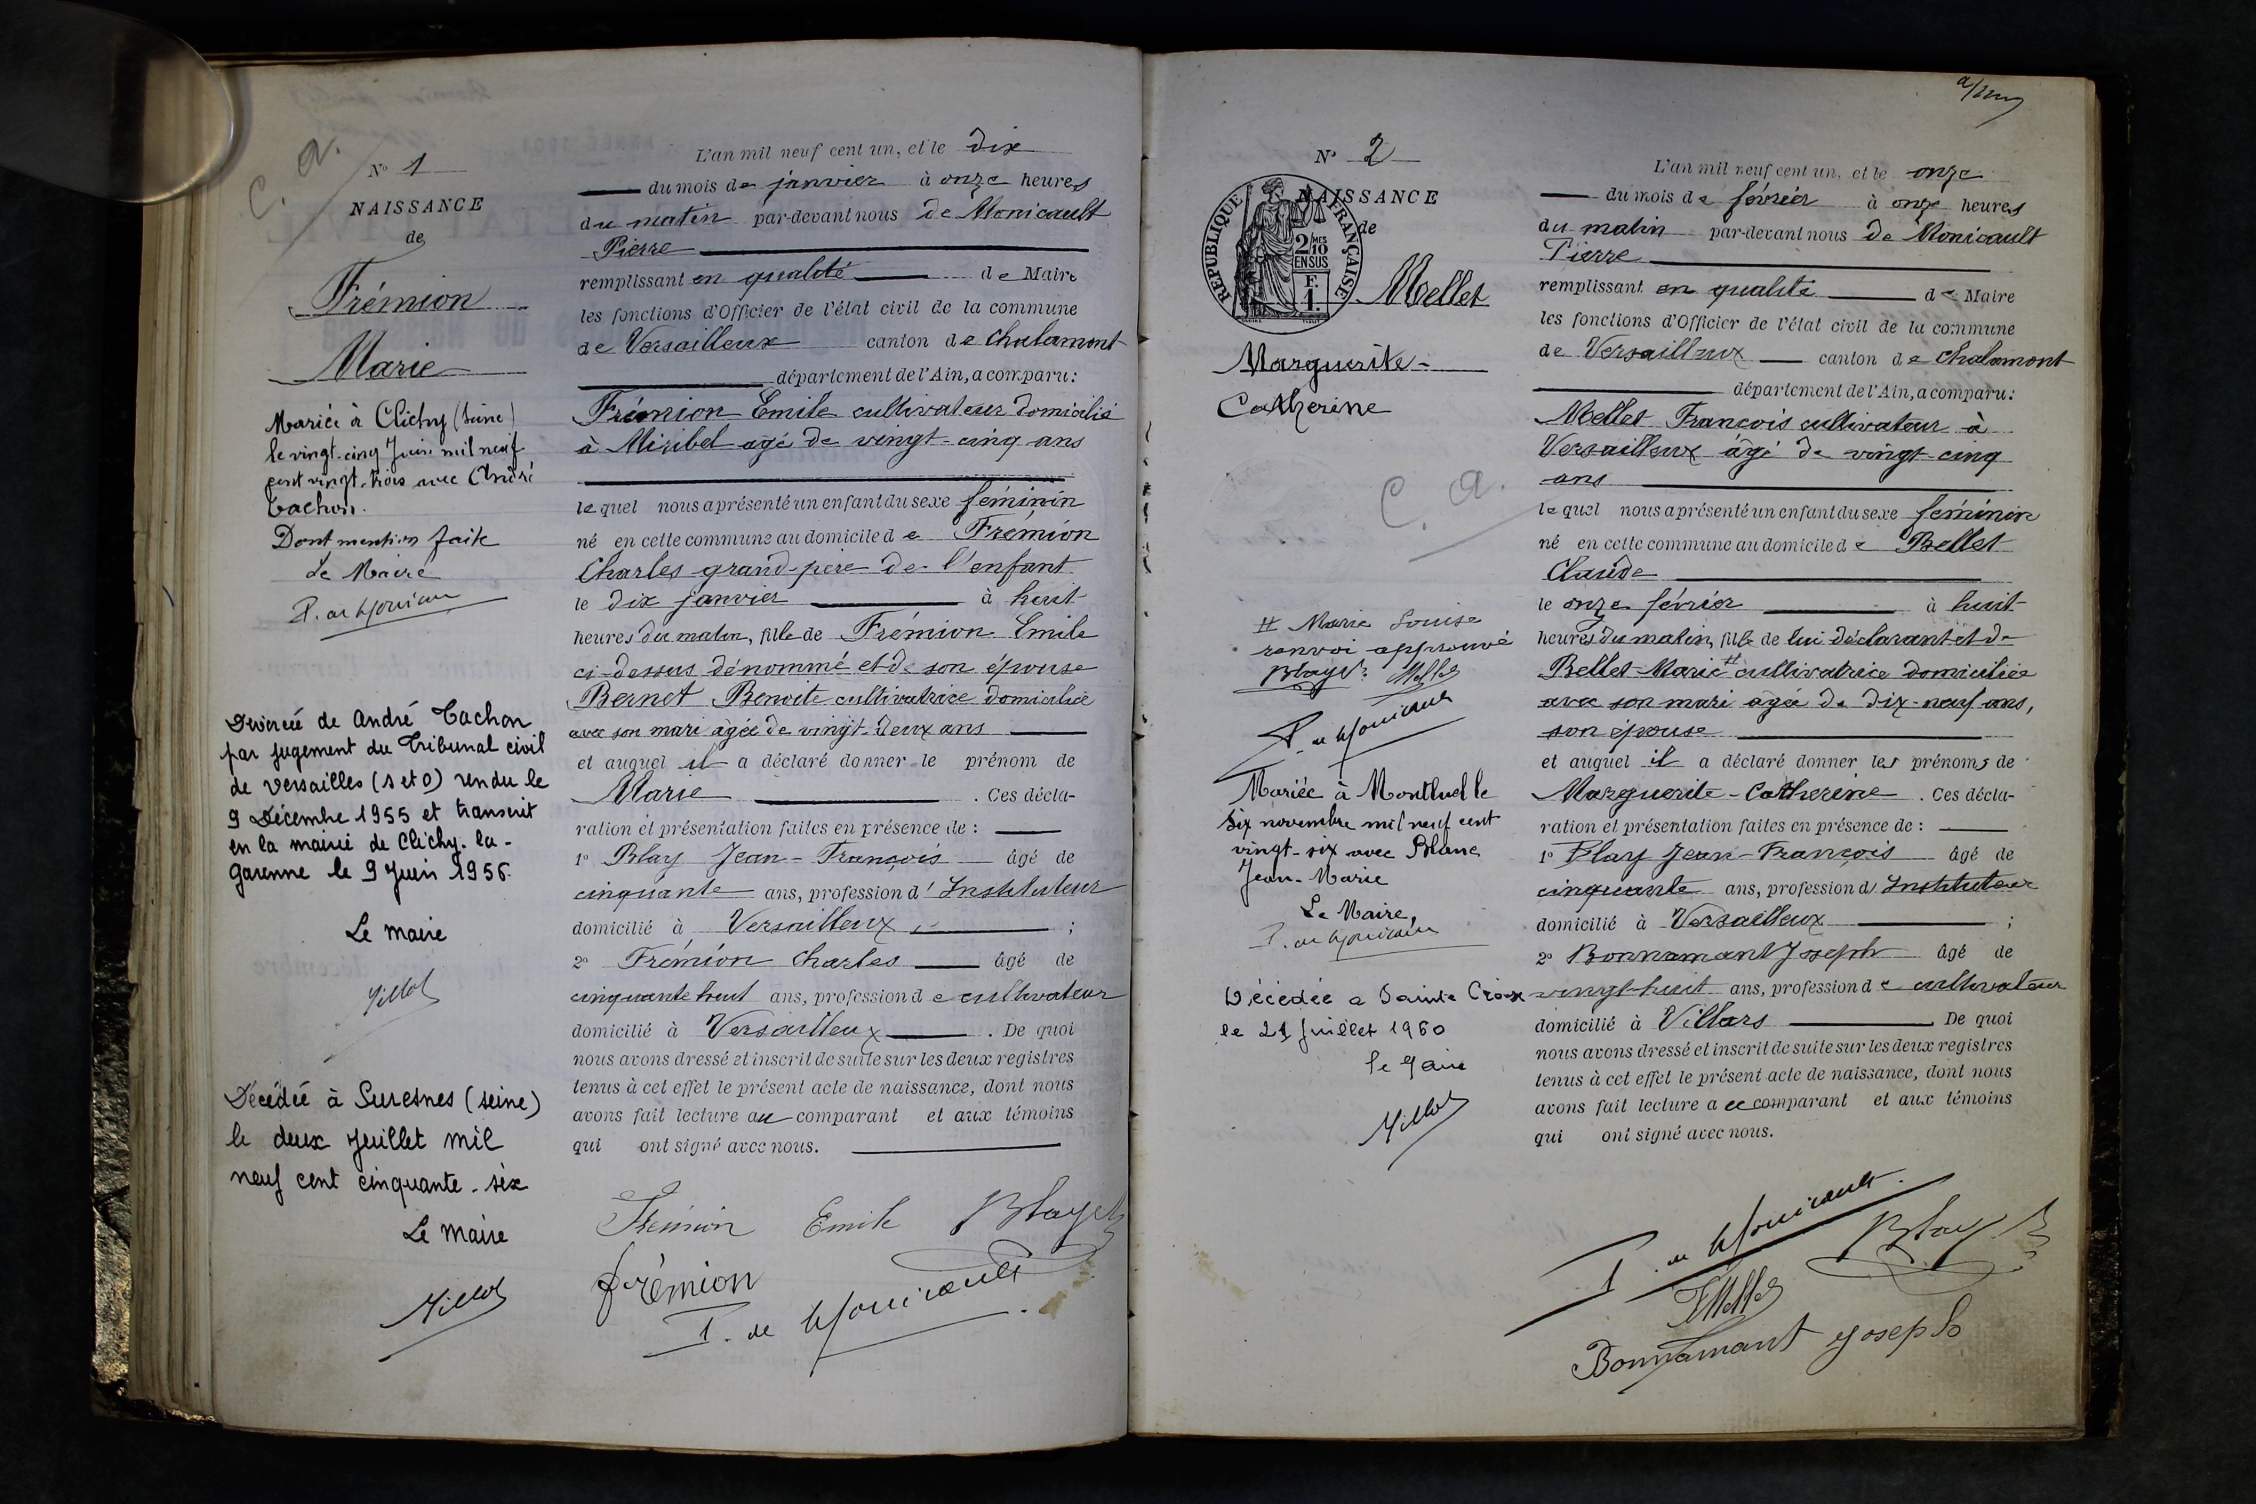 C. a.
N° 1
NAISSANCE
de
Frémion
Marie
Mariée à Clichy (Seine)
le vingt-cinq Juin mil neuf
cent vingt-trois avec André
Tachon.
Dont mention faite
Le Maire
Divorcée de André Tachon
par jugement du Tribunal civil
de Versailles (S et O) rendu le
9 Décembre 1955 et transcrit
en la mairie de Clichy-la-
Garenne le 9 Juin 1956.
Le Maire
Décédée à Suresnes (Seine)
le deux Juillet mil
neuf cent cinquante-six
Le Maire
L'an mil neuf cent un, et le dix
du mois de janvier à onze heures
du matin par-devant nous de Monicault
Pierre
remplissant en qualité de Maire
les fonctions d'Officier de l'état civil de la commune
de Versailleux canton de Chalamont
département de l'Ain, a comparu:
Frémion Emile cultivateur domicilié
à Miribel agé de vingt-cinq ans
lequel nous a présenté un enfant du sexe féminin
né en cette commune au domicile de Frémion
Charles grand-père de l'enfant
le dix janvier à huit
heures du matin, fille de Frémion Emile
ci-dessus dénommé et de son épouse
Bernet Benoite cultivatrice domiciliée
avec son mari agée de vingt-deux ans
et auquel il a déclaré donner le prénom de
Marie . Ces décla-
ration et présentation faites en présence de :
1° Blay Jean-François âgé de
cinquante ans, profession d'Instituteur
domicilié à Versailleux ;
2° Frémion Charles âgé de
cinquante huit ans, profession de cultivateur
domicilié à Versailleux . De quoi
nous avons dressé et inscrit de suite sur les deux registres
tenus à cet effet le présent acte de naissance, dont nous
avons fait lecture au comparant et aux témoins
qui ont signé avec nous.
Frémion Emile Blay
frémion
P. de Monicault
N° 2
NAISSANCE
de
RÉPUBLIQUE FRANÇAISE
2/MES
10
EN SUS
F.
1.
Mellet
Marguerite-
Catherine
C. a.
# Marie Louise
renvoi approuvé
Blay Mellet
P. de Monicault
Mariée à Montluel le
six novembre mil neuf cent
vingt-six avec Blanc
Jean-Marie
Le Maire,
P. de Monicault
Décédée a Sainte Croix
le 21 Juillet 1960
le Maire
L'an mil neuf cent un, et le onze
du mois de février à onze heures
du matin par-devant nous de Monicault
Pierre
remplissant en qualité de Maire
les fonctions d'Officier de l'état civil de la commune
de Versailleux canton de Chalamont
département de l'Ain, a comparu:
Mellet François cultivateur à
Versailleux âgé de vingt-cinq
ans
lequel nous a présenté un enfant du sexe féminin
né en cette commune au domicile de Bellet
Claude
le onze février à huit
heures du matin, fille de lui déclarant et de
Bellet-Marie # cultivatrice domiciliée
avec son mari agée de dix-neuf ans,
son épouse
et auquel il a déclaré donner les prénoms de
Marguerite-Catherine . Ces décla-
ration et présentation faites en présence de :
1° Blay Jean-François âgé de
cinquante ans, profession d'Instituteur
domicilié à Versailleux ;
2° Bonnamant Joseph âgé de
vingt-huit ans, profession de cultivateur
domicilié à Villars De quoi
nous avons dressé et inscrit de suite sur les deux registres
tenus à cet effet le présent acte de naissance, dont nous
avons fait lecture a ce comparant et aux témoins
qui ont signé avec nous.
P. de Monicault Blay
Mellet
Bonnamant Joseph